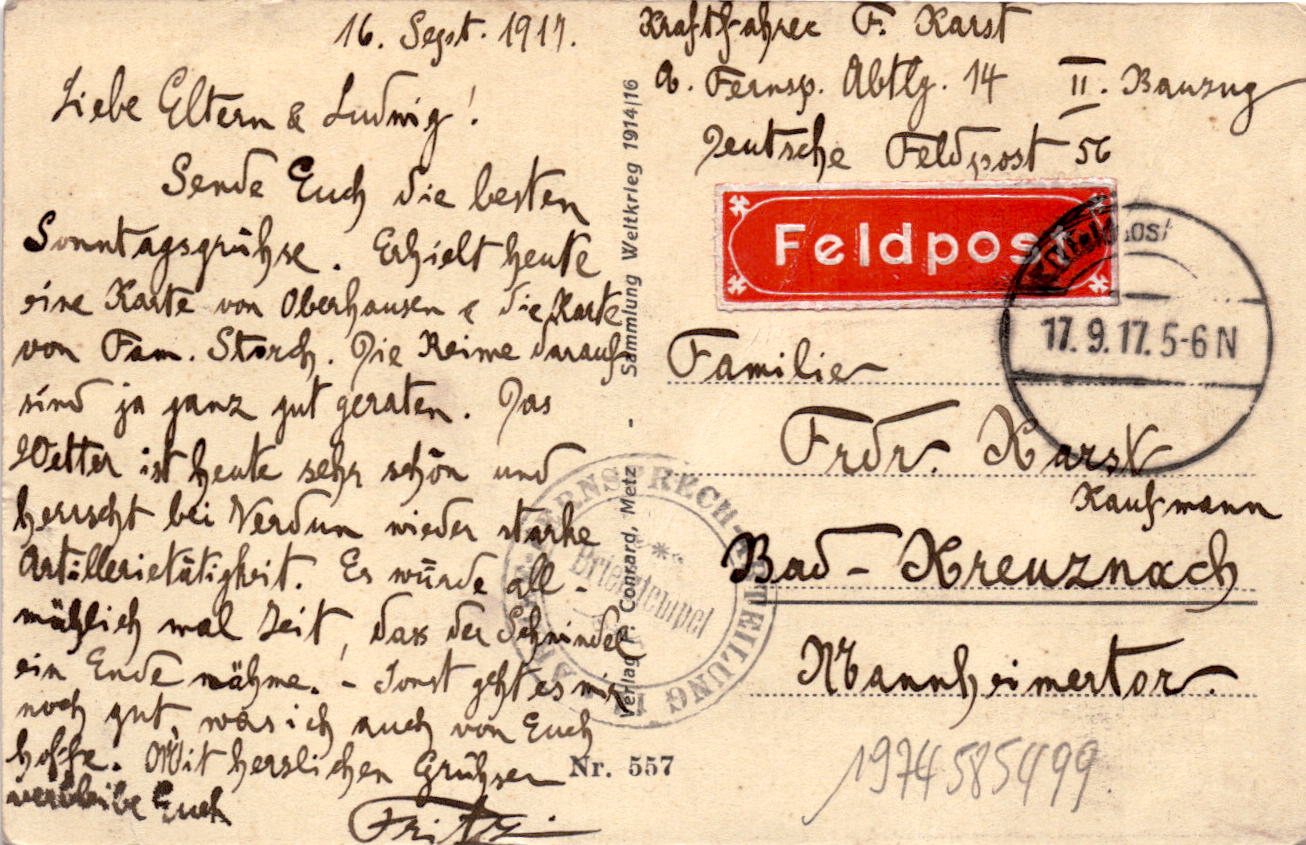 16. Sept. 1917.
Liebe Eltern & Ludwig!
Sende Euch die besten
Sonntagsgrühse. Erhielt heute
eine Karte von Oberhausen & die Karte
von Fam. Storch. Die Reime darauf
sind ja ganz gut geraten. Das
Wetter ist heute sehr schön und
herrscht bei Verdun wieder starke
Artillerietätigkeit. Es würde all-
mählich mal Zeit, dass der Schwindel
ein Ende nähme. - Sonst geht es mir
noch gut, was ich auch von Euch
hoffe. Mit herzlichen Grühsen
verbleibe Euch
Fritz.
Sammlung Weltkrieg 1914/16
-
Verlag P. Conrard, Metz
Nr. 557
Kraftfahrer F. Karst
A. Fernsp. Abtlg. 14 II. Bauzug
Deutsche Feldpost 56
Feldpost
17. 9. 17. 5-6 N
FERNSPRECH-ABTEILUNG
Briefstempel
Familie
Frdr. Karst
Kaufmann
Bad-Kreuznach
Mannheimertor.
1974585499